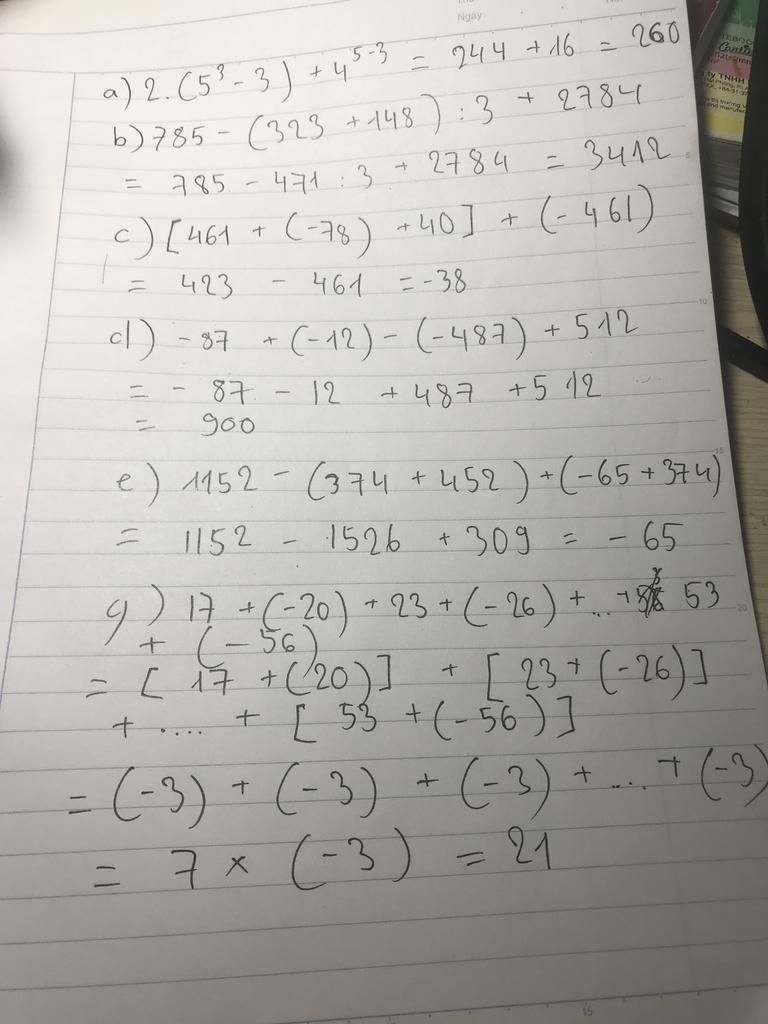 Ngày
a) 2.(5³ - 3) + 4⁵⁻³ = 244 + 16 = 260
b) 785 - (323 + 148) : 3 + 2784
= 785 - 471 : 3 + 2784 = 3412
c) [461 + (-78) + 40] + (-461)
= 423 - 461 = -38
d) -87 + (-12) - (-487) + 512
= - 87 - 12 + 487 + 512
= 900
e) 1152 - (374 + 452) + (-65 + 374)
= 1152 - 1526 + 309 = - 65
g) 17 + (-20) + 23 + (-26) + ... + 53
+ (-56)
= [17 + (20)] + [23 + (-26)]
+ .... + [53 + (-56)]
= (-3) + (-3) + (-3) + ... + (-3)
= 7 × (-3) = 21
5
10
15
20
15
ty TNHH